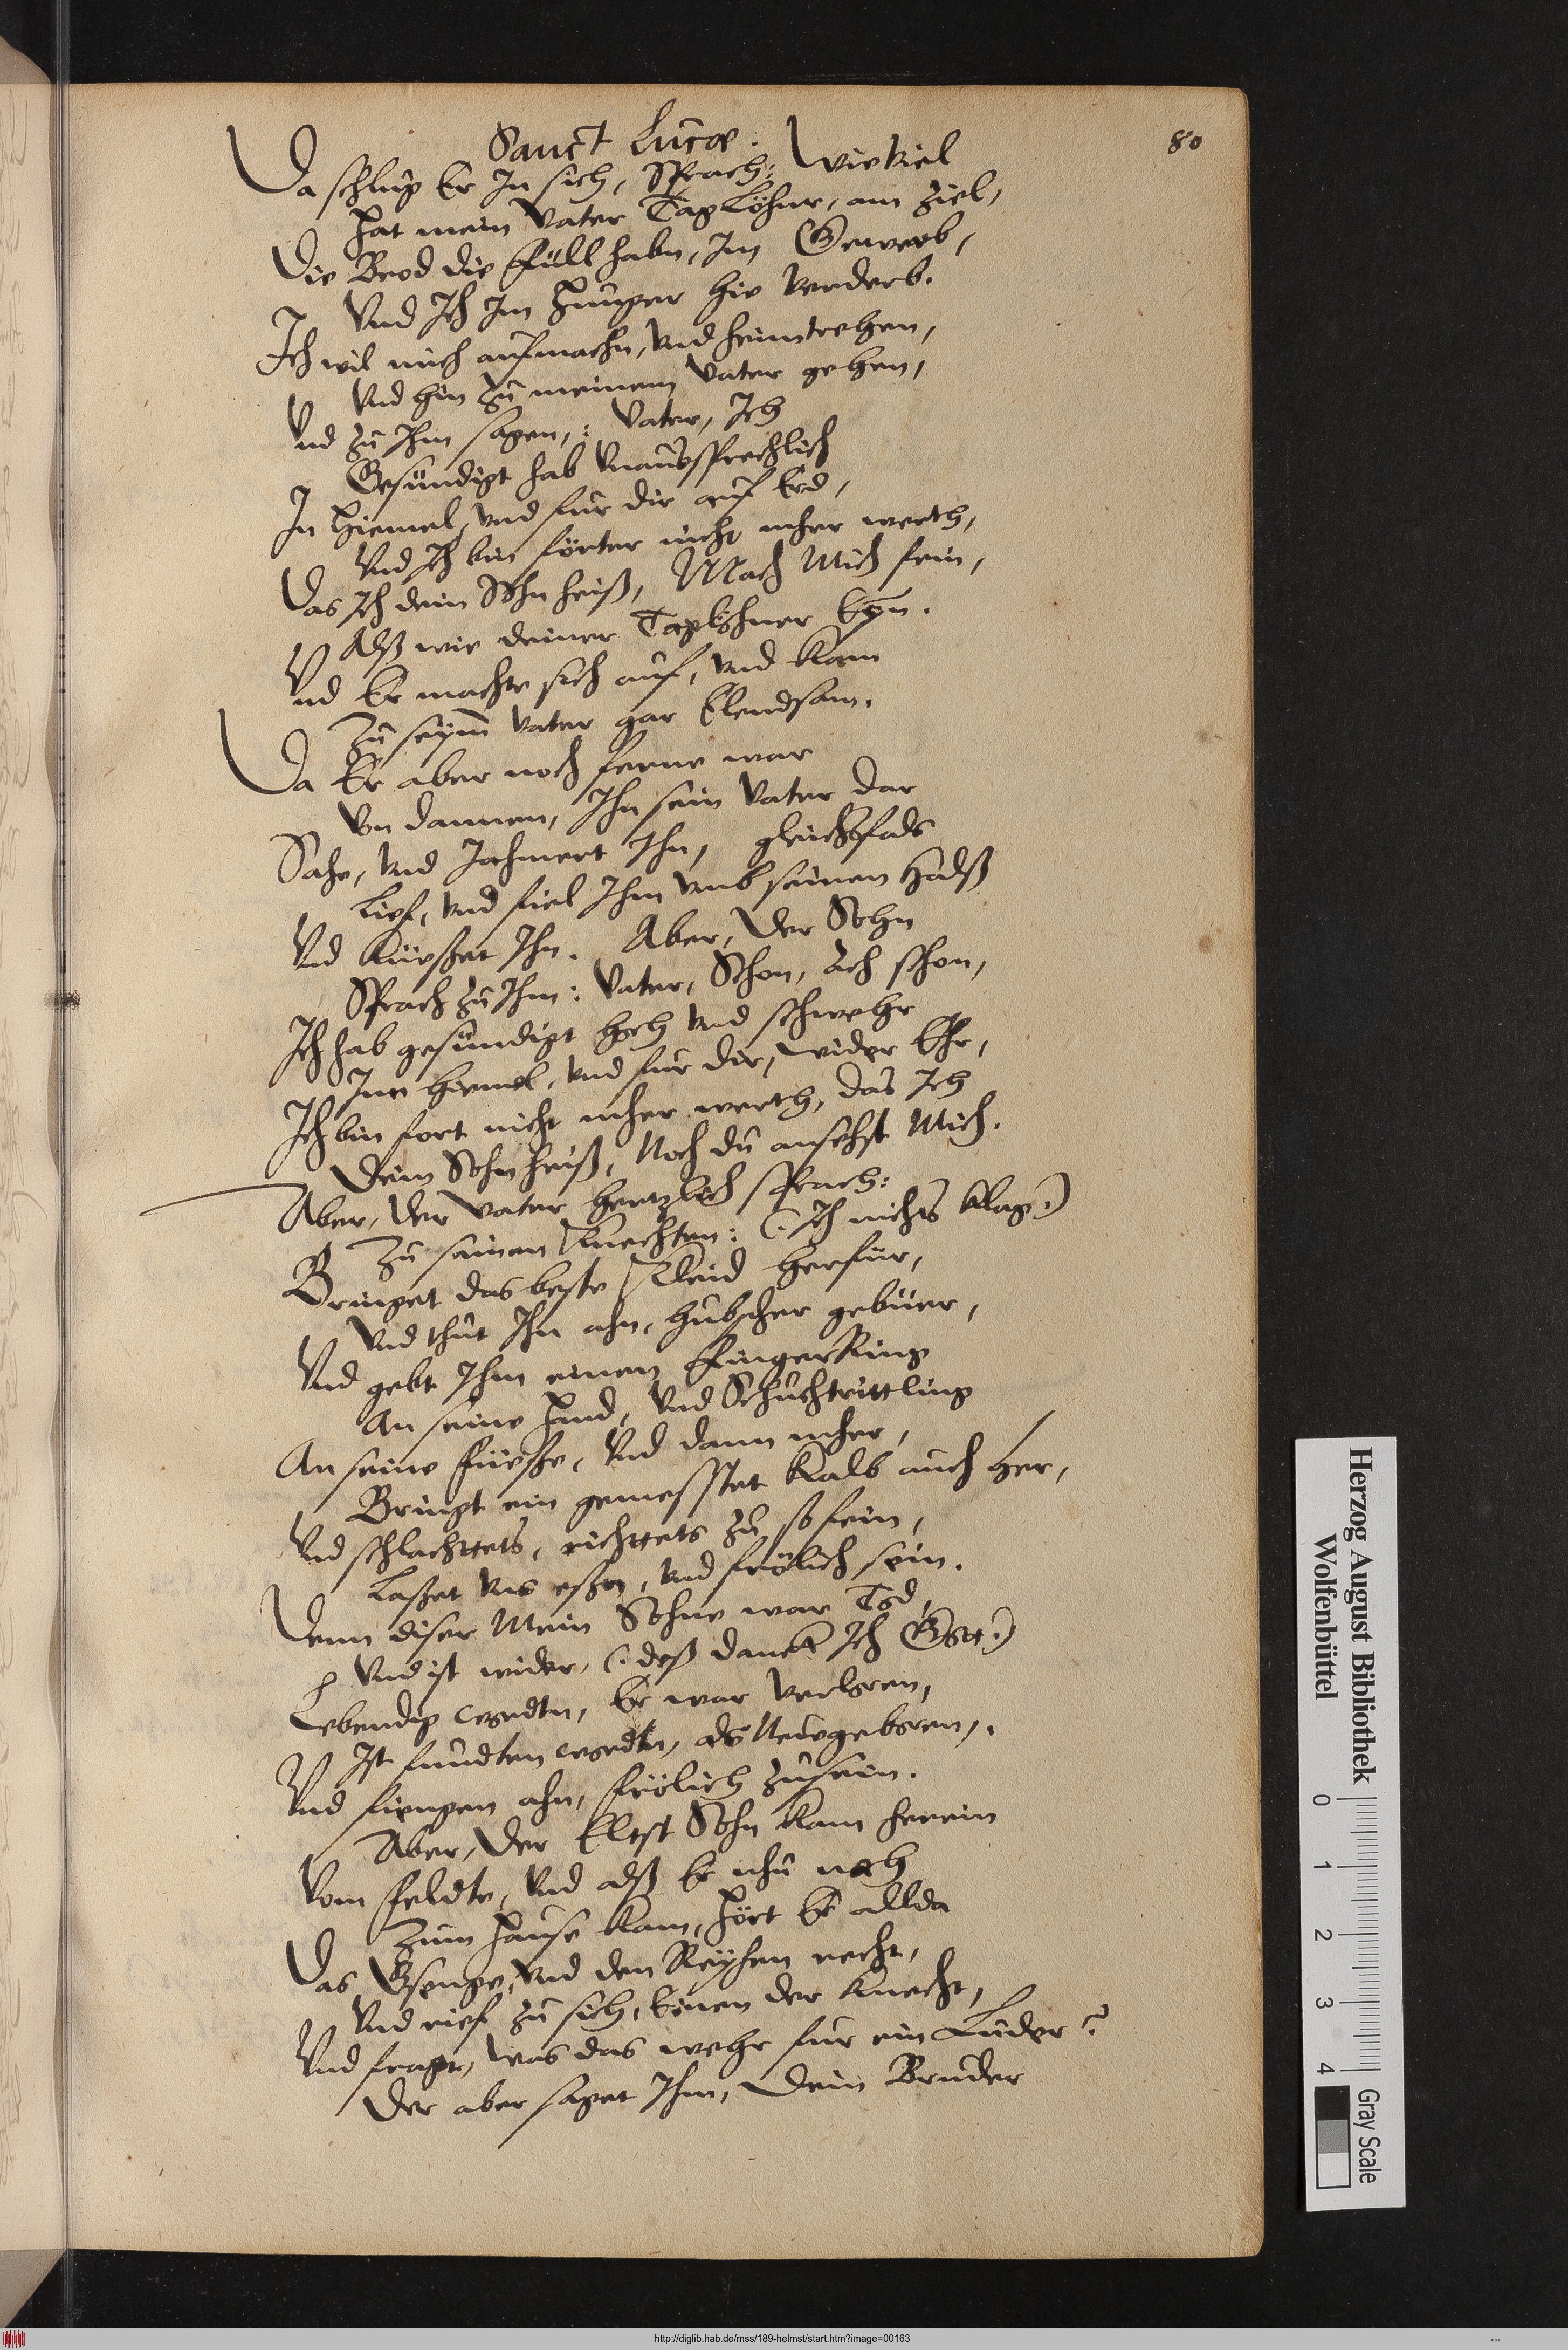 Sanct Lucæ.
80
Da schlug Er In sich, Sprach: Wieviel
Hat mein Vater Taglöhner, am Ziel,
Die Brod die Füll habn, Im Gewerb,
Und Ich Im Hunger hie verderb.
Ich wil mich aufmachn, und heimtrehen,
Und hin zu meinem Vater gehen,
Und zu Ihm sagen,: Vater, Ich
Gesündigt hab unaussprechlich
In Hiemel, und für dir auf Erd,
Und Ich bin förter nicht mher werth,
Das Ich dein Sohn heiß, Mach Mich fein,
Alß wie deiner Taglöhner Eyn.
Und Er machte sich auf, und kam
Zu seym Vater gar Elendsam.
Da Er aber noch ferne war
Von dannen, Ihn sein Vater dar
Sahe, und Jahmert Ihn, gleichsfals
Lief, und fiel Ihm umb seinen Halß
Und küeßet Ihn. Aber, der Sohn
Sprach zu Ihm: Vater, Schon, Ach schon,
Ich hab gesündigt hoch und schwehr
Inn Hiemel, und für dir, wider Ehr,
Ich bin fort nicht mher werth, das Ich
Dein Sohn heiß, Noch du ansehst Mich.
Aber, der Vater hertzlich sprach:
Zu seinen Knechten: (: Ich nichts klag :)
Bringet das beste Kleid herfür,
Und thut Ihn ahn, hübscher gebüer,
Und gebt Ihm einen FingerRing
An seine Hand, und Schuchtrittling
An seine Füeße, Und dann mher,
Bringt ein gemesstet Kalb auch her,
Und schlachttets, richttets zu so fein,
Laßet uns eßen, und frölich sein.
Denn diser Mein Sohne war Tod,
Und ist wider, (: deß danck Ich Gott :)
Lebendig wordtn, Er war verloren,
Ist fundten wordtn, als Neuegeboren,.
Und fiengen ahn, frölich zusein.
Aber, der Eltst Sohn kam herein
Vom Feldte, Und alß Er nhu noh
Zum Hause kam, hört Er allda
Das Gsenge, und den Reyhen recht,
Und rief zu sich, Einen der Knecht,
Und fragt, was das wehr für ein Luder?
Der aber saget Ihm, Dein Bruder
Herzog August Bibliothek
Wolfenbüttel
0 1 2 3 4
Gray Scale
http://diglib.hab.de/mss/189-helmst/start.htm?image=00163